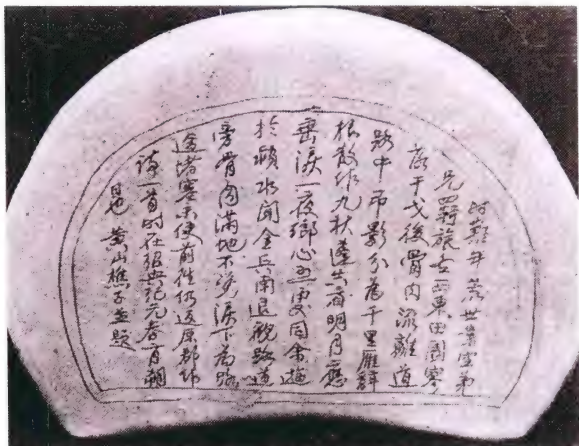 时難年荒世業空弟
兄羁旅各西東田園寥
落干戈後骨肉流離道
路中吊影分為千里雁辭
根散作九秋蓬共看明月應
垂淚一夜鄉心五更同余遊
於颍水聞金兵南退觀路道
傍骨肉滿地不淚下為路
途堵塞不便前往仍返原郡作
詩一首时在紹興紀元春月朝
日也 黄山樵子並題